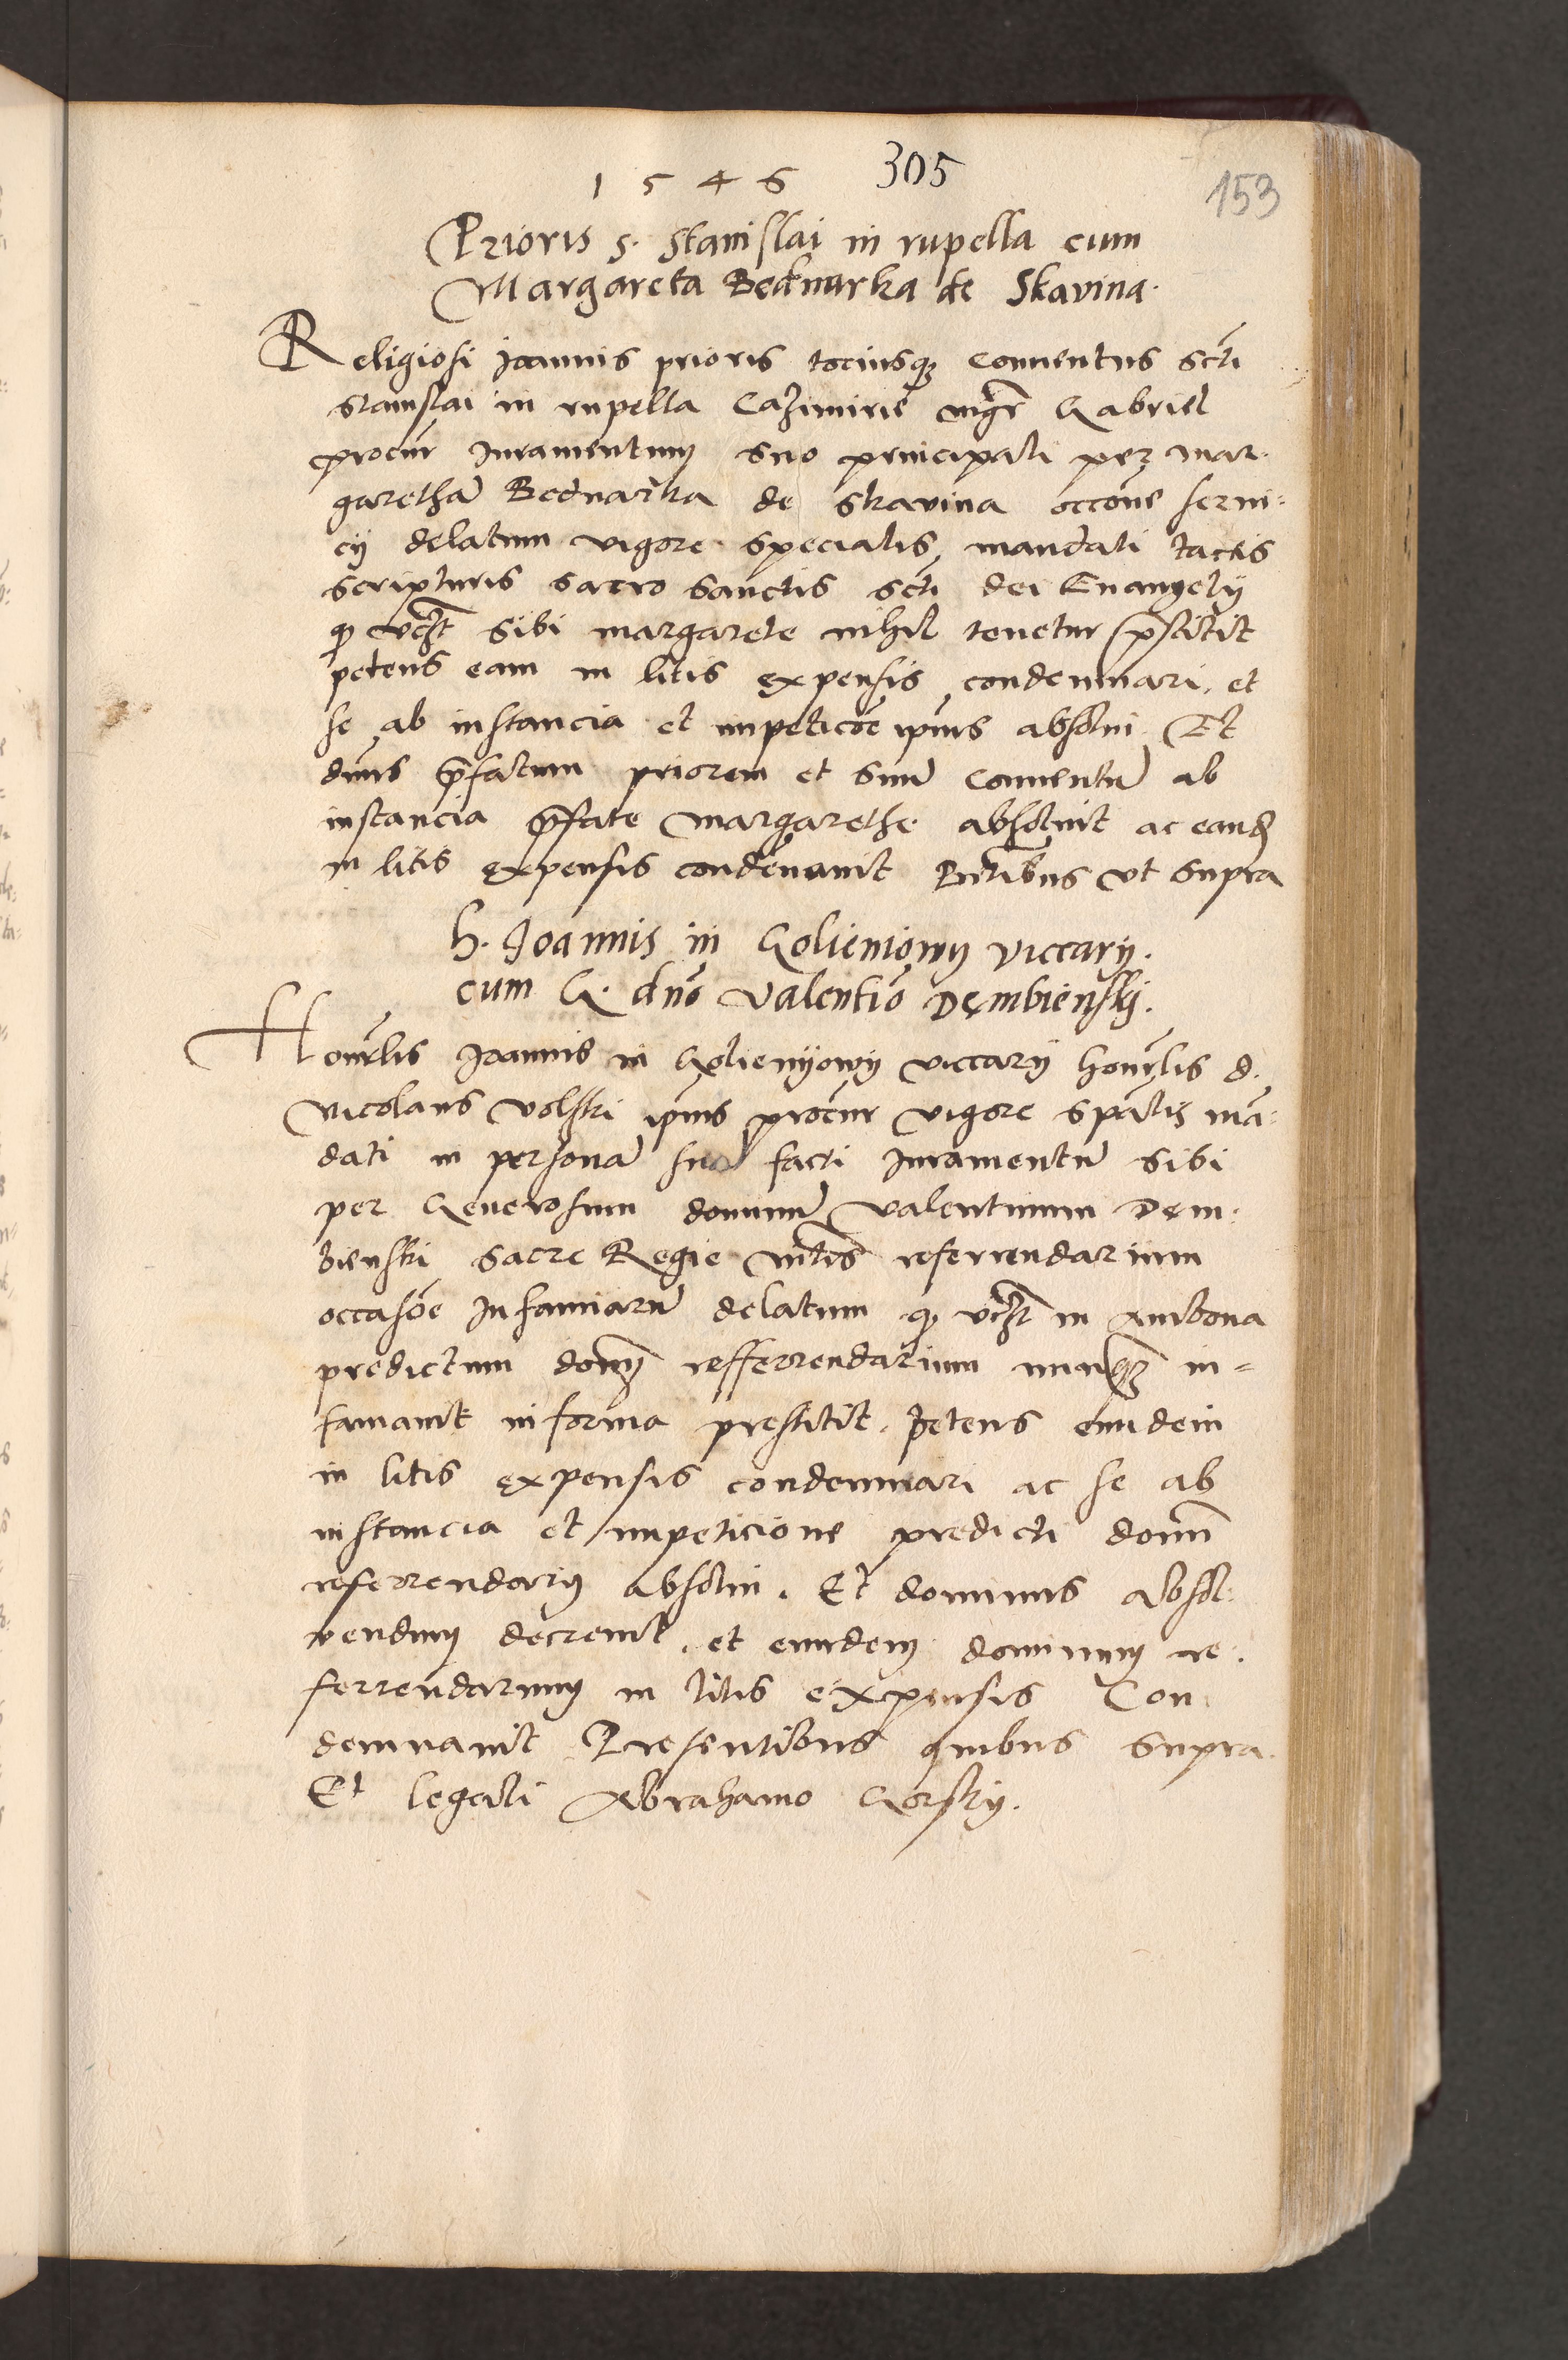 1546 305
153
Prioris s. Stanislai in rupella cum
Margareta Bednarka de Skavina.
Religiosi Joannis prioris tociusqꝫ Conuentus scti
Stanislai in rupella Cazimirie mgr Gabriel
procur Juramentum suo principali per Mar-
garethā Bednarka de Skavina occone serui-
cij delatum vigore specialis mandati tactis
scripturis sacro sanctis scti dei Euangelij
qꝫ videlꝫ sibi margarete nihil tenetur p̄stitit
petens eam in litis expensis condemnari. et
se ab instancia et impeticōe ipius absolui. Et
dnus p̄fatum priorem et suū Conuentū ab
instancia p̄fate Margarethe absoluit ac eandꝫ
in litis expensis condēnauit Pntibus vt supra
h. Joannis in Golieniowy viccarij.
cum G. dno Valentio Dęmbienskj.
Honrlis Joannis in Golienijowy viccarij honrlis d.
Nicolaus Volski ipius procur vigore spalis mā-
dati in personā sua facti Juramentū sibi
per Generosum dominū Valentinum Dęm-
bienski Sacre Regie Mtis referrendarium
occasōe Infamiarū delatum qꝫ in Ambona
predictum domꝫ refferrendarium nunqꝫ in=
famauit in forma prestitit. Petens eundem
in litis expensis condemnari ac se ab
instancia et impeticione predicti domi
referrendarij absolui. Et dominus absol-
uendum decreuit. et eundem dominum re-
ferrendarium in litis expensis Con
demnauit Presentibus quibus supra.
Et legali Abrahamo Gorskij.